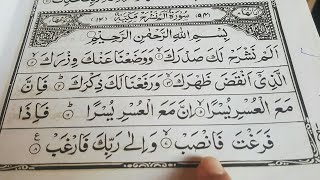 (٩٤) سُوْرَةُ اَلَمْ نَشْرَحْ مَكِّيَّةٌ (١٢)
بِسْمِ اللّٰهِ الرَّحْمٰنِ الرَّحِيْمِ
اَلَمْ نَشْرَحْ لَكَ صَدْرَكَ ۙ۝١ وَوَضَعْنَا عَنْكَ وِزْرَكَ ۙ۝٢
الَّذِيْٓ اَنْقَضَ ظَهْرَكَ ۙ۝٣ وَرَفَعْنَا لَكَ ذِكْرَكَ ؕ۝٤ فَاِنَّ
مَعَ الْعُسْرِ يُسْرًا ۙ۝٥ اِنَّ مَعَ الْعُسْرِ يُسْرًا ؕ۝٦ فَاِذَا
فَرَغْتَ فَانْصَبْ ۙ۝٧ وَاِلٰى رَبِّكَ فَارْغَبْ ۝٨ ع